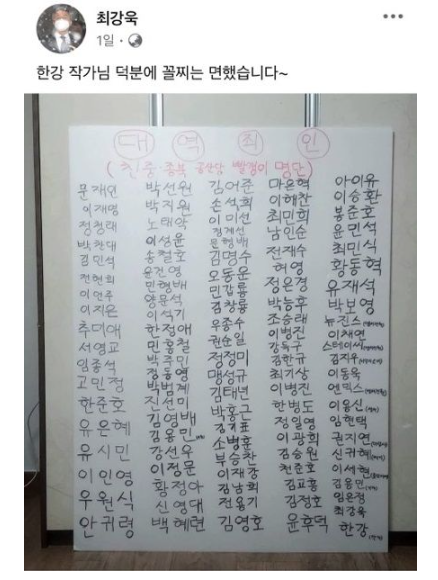 최강욱
1일
한강 작가님 덕분에 꼴찌는 면했습니다~
대역죄인
(친중 종북 공산당 빨갱이 명단)
문재인
이재명
정청래
박찬대
김민석
전현희
이언주
이지은
추미애
서영교
임종석
고민정
한준호
유은혜
유시민
이인영
우원식
안귀령
박선원
박지원
노태악
이성윤
송철호
윤건영
민형배
양문석
이석기
한정애
민홍철
박주민
정동영
박범계
진선미
김영배
김용민
강선우
이정문
황정아
신영대
백혜련
김어준
손석희
이미선
정계선
문형배
김명수
오동운
민갑룡
김창룡
우종수
권순일
정정미
맹성규
김태년
박홍근
김기표
소병훈
부승찬
이재강
김남희
전용기
김영호
마은혁
이해찬
최민희
남인순
전재수
허영
정은경
박능후
조승래
이병진
강득구
김한규
최기상
이병진
한병도
정일영
이광희
김승원
천준호
김교흥
김정호
윤후덕
아이유
이승환
봉준호
윤민석
최민식
황동혁
유재석
박보영
뉴진스
이채연
스테이씨
김지우
이동욱
엔믹스
이웅신
임현택
권지연
신귀혜
이세현
김웅민
임은정
최강욱
한강